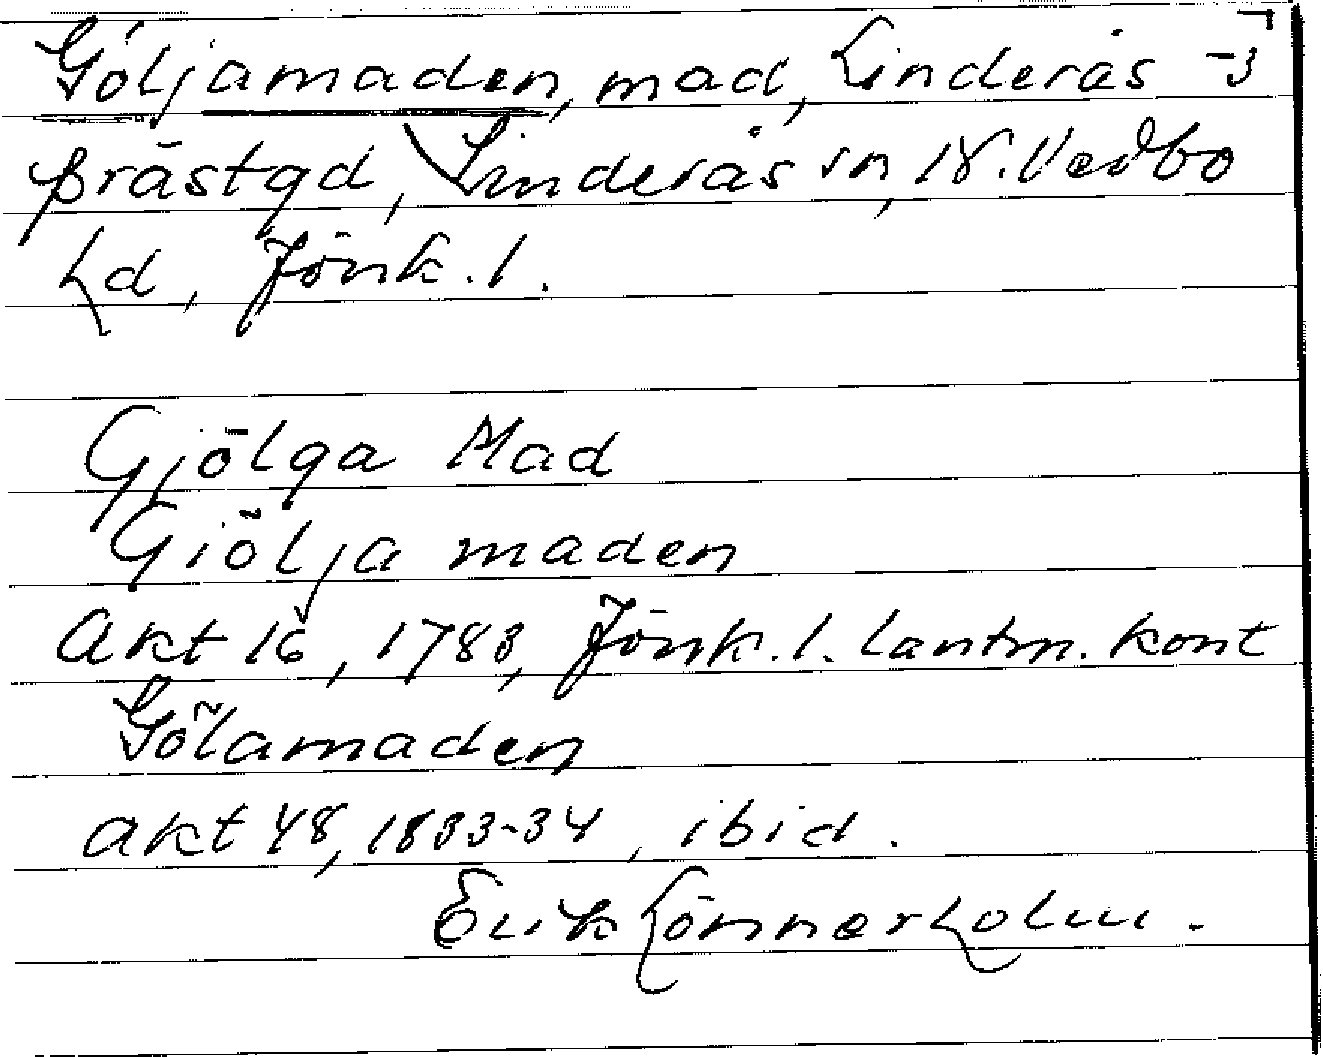 Göljamaden, mad, Linderås
prästgd, Linderås sn, N. Vedbo
hd, Jönk. l.
Gjölga Mad
Giölja maden
Akt 16, 1783, Jönk. l. lantm. kont
Gölamaden
akt 48, 1833-34, ibid.
Erik Lönnerholm.